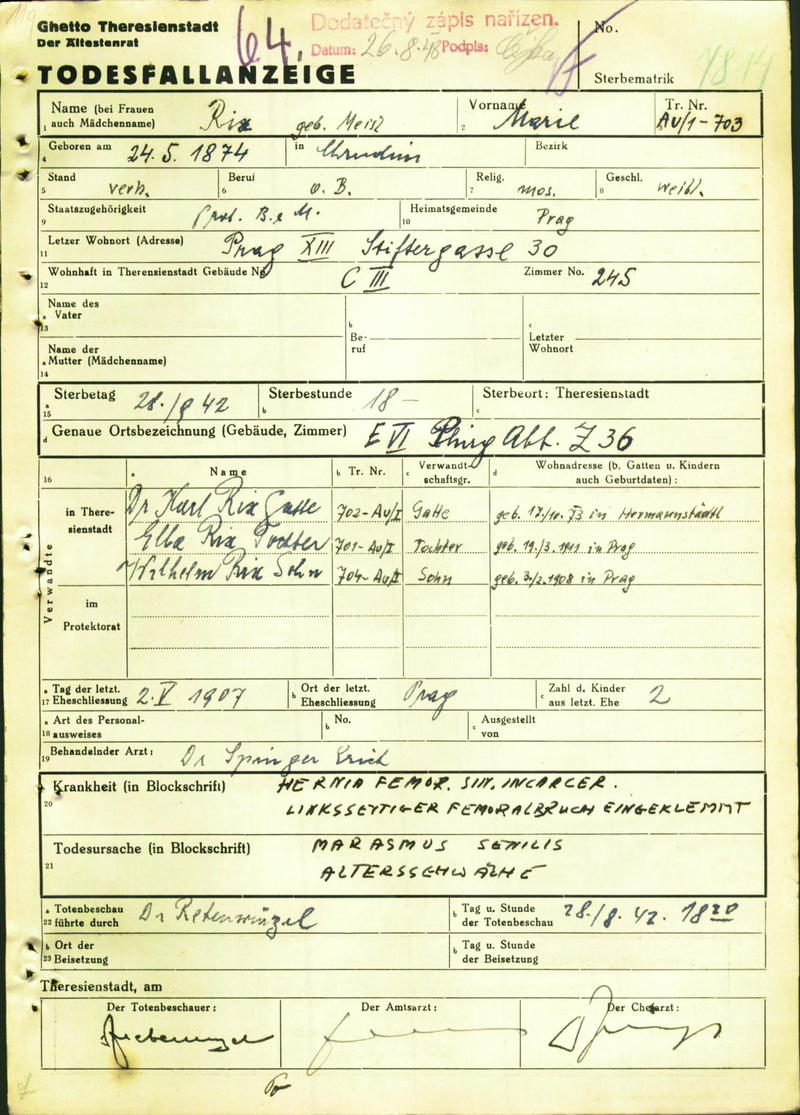 Ghetto Theresienstadt
Der Ältestenrat
64.
Dodatečný zápis nařízen.
Datum: 26.8.48 Podpis:
No.
TODESFALLANZEIGE
Sterbematrik
Name (bei Frauen auch Mädchenname) Rix geb. Meisl
Vorname Marie
Tr. Nr. AU/1-703
Geboren am 24.5. 1874 in Chrudim
Bezirk
Stand verh. Beruf o. B. Relig. mos. Geschl. weibl.
Staatszugehörigkeit Prot. B. u M. Heimatsgemeinde Prag
Letzer Wohnort (Adresse) Prag XIII Stiftergasse 30
Wohnhaft in Theresienstadt Gebäude No. C III Zimmer No. 245
Name des Vater
Beruf
Letzter Wohnort
Name der Mutter (Mädchenname)
Sterbetag 28./8 42 Sterbestunde 18 – Sterbeort: Theresienstadt
Genaue Ortsbezeichnung (Gebäude, Zimmer) E VI Chirg Abt. Z 36
16 a Name b Tr. Nr. c Verwandtschaftsgr. d Wohnadresse (b. Gatten u. Kindern auch Geburtdaten):
Verwandte
in Theresienstadt
Dr Karl Rix Gatte 702-AU/I Gatte geb. 17./10. 73 in Hermannstädtl
Elba Rix Tochter 701-AU/I Tochter geb. 19./3. 1911 in Prag
Wilhelm Rix Sohn 704-AU/I Sohn in Prag
im Protektorat
17 a Tag der letzt. Eheschliessung 2. V 1907 b Ort der letzt. Eheschliessung Prag c Zahl d. Kinder aus letzt. Ehe 2
18 a Art des Personalausweises b No. c Ausgestellt von
19 Behandelnder Arzt: Dr Springer Erich
20 Krankheit (in Blockschrift) HERNIA FEMOR. SIN. INCARCER.
LINKSSEITIGER FEMORALBRUCH EINGEKLEMMT
21 Todesursache (in Blockschrift) MARASMUS SENILIS
ALTERSSCHWÄCHE
22 a Totenbeschau führte durch Dr b Tag u. Stunde der Totenbeschau 28./8. 42. 18
23 b Ort der Beisetzung b Tag u. Stunde der Beisetzung
Theresienstadt, am
Der Totenbeschauer: Der Amtsarzt: Der Chefarzt: